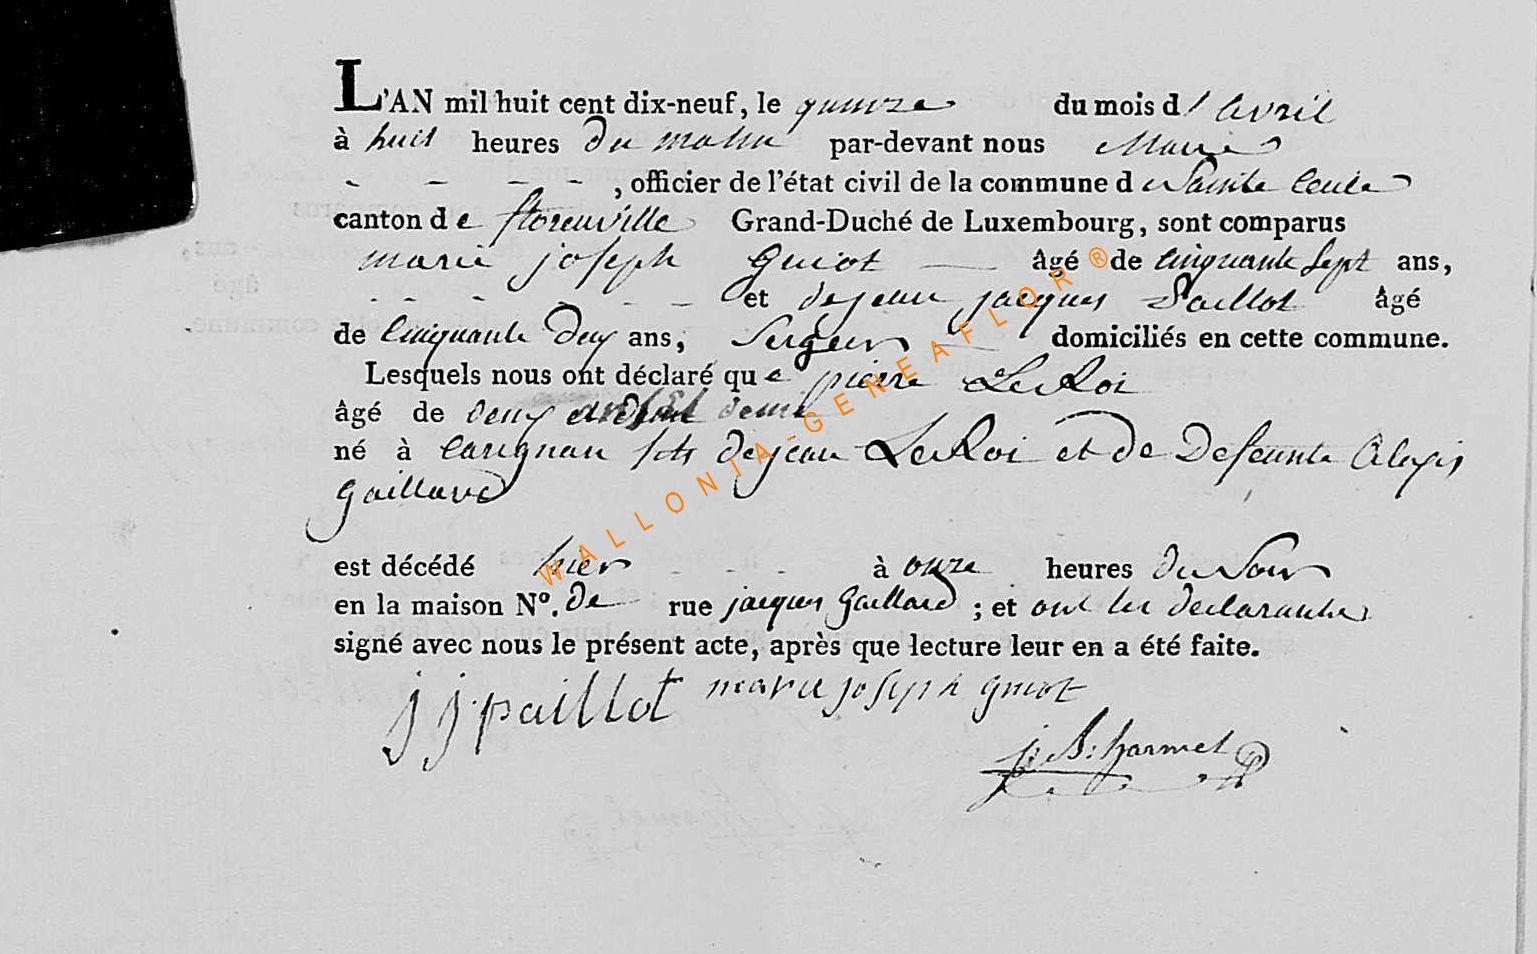 L'AN mil huit cent dix-neuf, le quinze du mois d'avril
à huit heures du matin par-devant nous Maire
, officier de l'état civil de la commune de Sainte Cecile
canton de florenville Grand-Duché de Luxembourg, sont comparus
marie joseph Guiot âgé de Cinquante Sept ans,
et de jean jacques Paillot âgé
de Cinquante deux ans, domiciliés en cette commune.
Lesquels nous ont déclaré que pierre Le Roi
âgé de deux et demi
né à Carignan fils de jean Le Roi et de Defeunte Alexis
Gaillard
est décédé hier à onze heures du Soir
en la maison N°. de rue jacques Gaillard ; et ont les declarants
signé avec nous le présent acte, après que lecture leur en a été faite.
j j paillot marie joseph guiot
j. B. harmel
WALLONIA-GENEAFLOR®